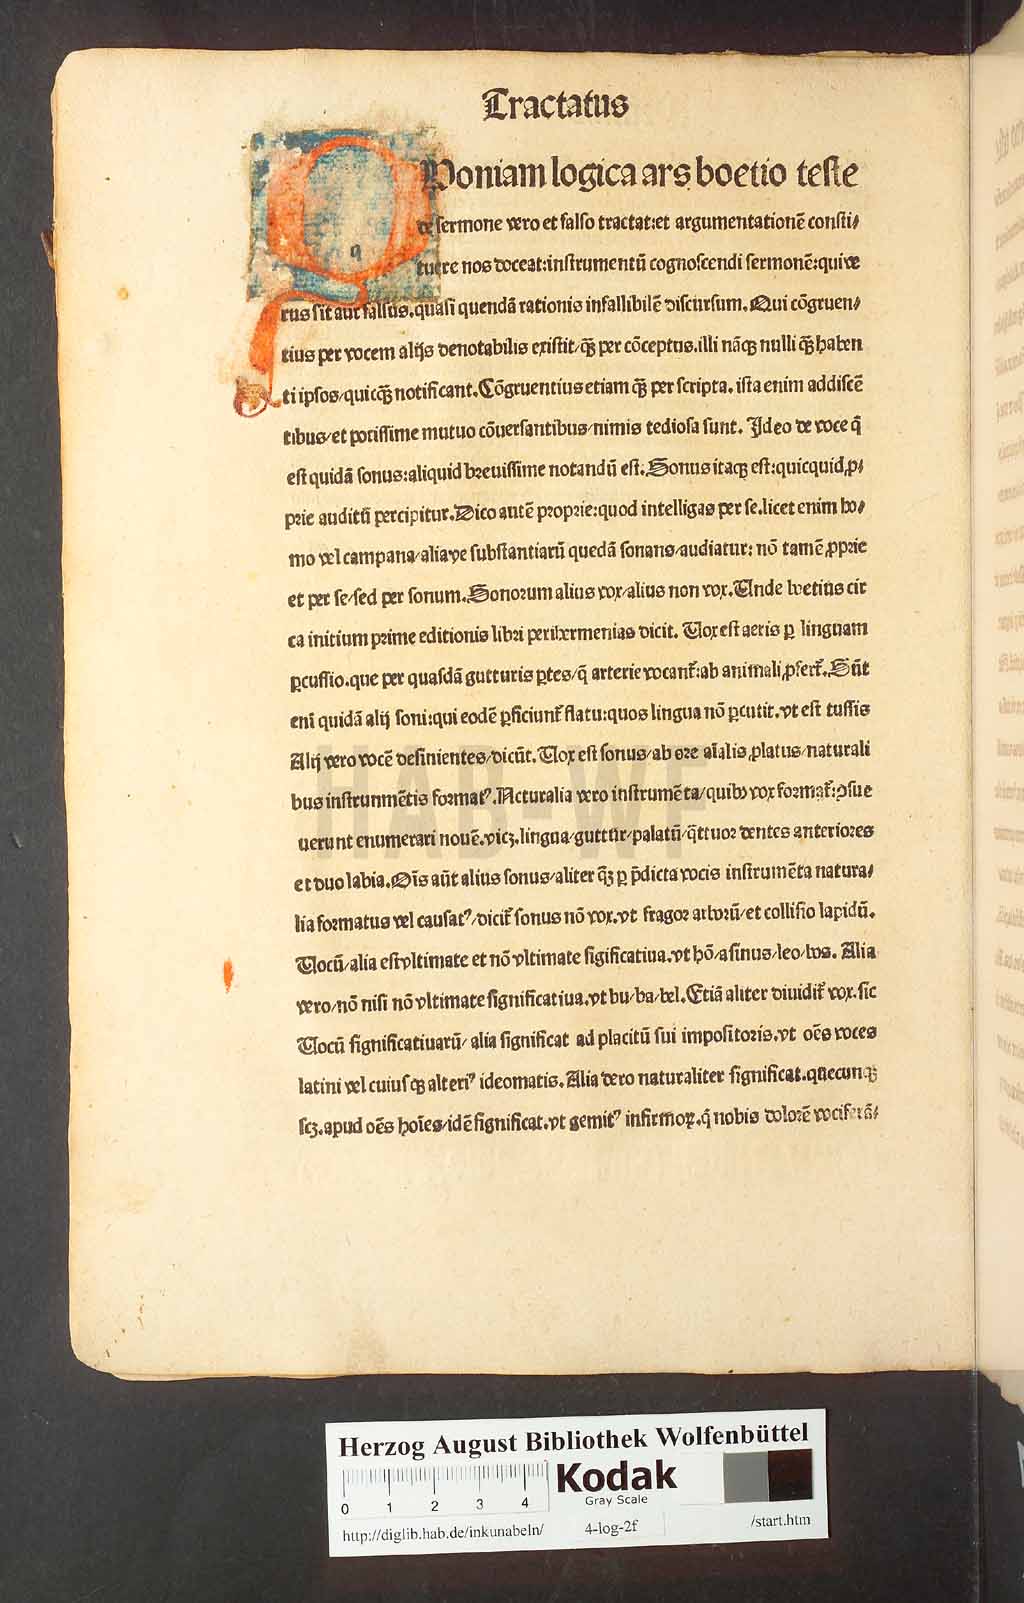 Tractatus
QVoniam logica ars boetio teste
de sermone vero et falso tractat:et argumentationē consti/
tuere nos doceat:instrumentū cognoscendi sermonē:qui ve
rus sit aut falsus.quasi quendā rationis infallibilē discursum.Qui cōgruen/
tius per vocem alijs denotabilis existit/qȝ per cōceptus.illi nāqȝ nulli qȝ haben
ti ipsos/quicqȝ notificant.Cōgruentius etiam qȝ per scripta.ista enim addiscē
tibus/et potissime mutuo cōuersantibus/nimis tediosa sunt. Ideo de voce q̄
est quidā sonus:aliquid breuissime notandū est.Sonus itaqȝ est:quicquid ꝓ/
prie auditū percipitur.Dico autē proprie:quod intelligas per se.licet enim ho/
mo vel campana/aliave substantiarū quedā sonans/audiatur: nō tamē ꝓprie
et per se/sed per sonum.Sonorum alius vox/alius non vox.Unde boetius cir
ca initium prime editionis libri perihermenias dicit. Vox est aeris ꝑ linguam
ꝑcussio.que per quasdā gutturis ꝑtes/q̄ arterie vocant᷑:ab animali ꝓfert᷑.Sūt
eni quidā alij soni:qui eodē ꝑficiunt᷑ flatu:quos lingua nō ꝑcutit.vt est tussis
Alij vero vocē definientes/dicūt.Vox est sonus/ab ore aīalis ꝓlatus/naturali
bus instrunmētis formatꝰ.Naturalia vero instrumēta/quibꝰ vox format᷑:ꝯsue
uerunt enumerari nouē.vicȝ.lingua/guttur/palatū/q̄ttuor dentes anteriores
et duo labia.Oīs aūt alius sonus/aliter qȝ ꝑ p̄dicta vocis instrumēta natura/
lia formatus vel causatꝰ/dicit᷑ sonus nō vox.vt fragor arborū/et collisio lapidū.
Vocū/alia est vltimate et nō vltimate sigificatiua.vt hō/asinus/leo/bos. Alia
vero/nō nisi nō vltimate significatiua.vt bu/ba/bel.Etiā aliter diuidit᷑ vox.sic
Vocū significatiuarū/ alia significat ad placitū sui impositoris.vt oēs voces
latini vel cuiusqȝ alteriꝰ ideomatis.Alia vero naturaliter significat.quecunqȝ
scȝ.apud oēs hoīes/idē significat.vt gemitꝰ infirmoꝝ.q̄ nobis dolorē vociferā/
Herzog August Bibliothek Wolfenbüttel
0 1 2 3 4
Kodak
Gray Scale
http://diglib.hab.de/inkunabeln/ 4-log-2f /start.htm
HAB-WF